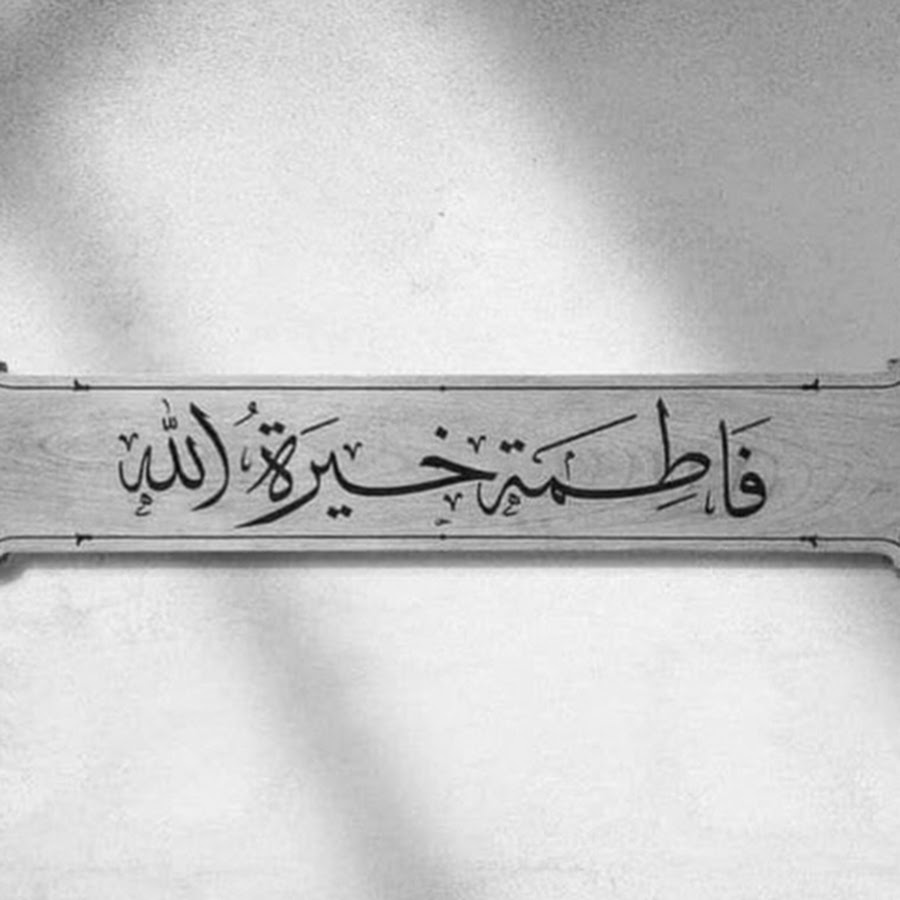 فَاطِمَة خِيَرَةُ اللّٰه